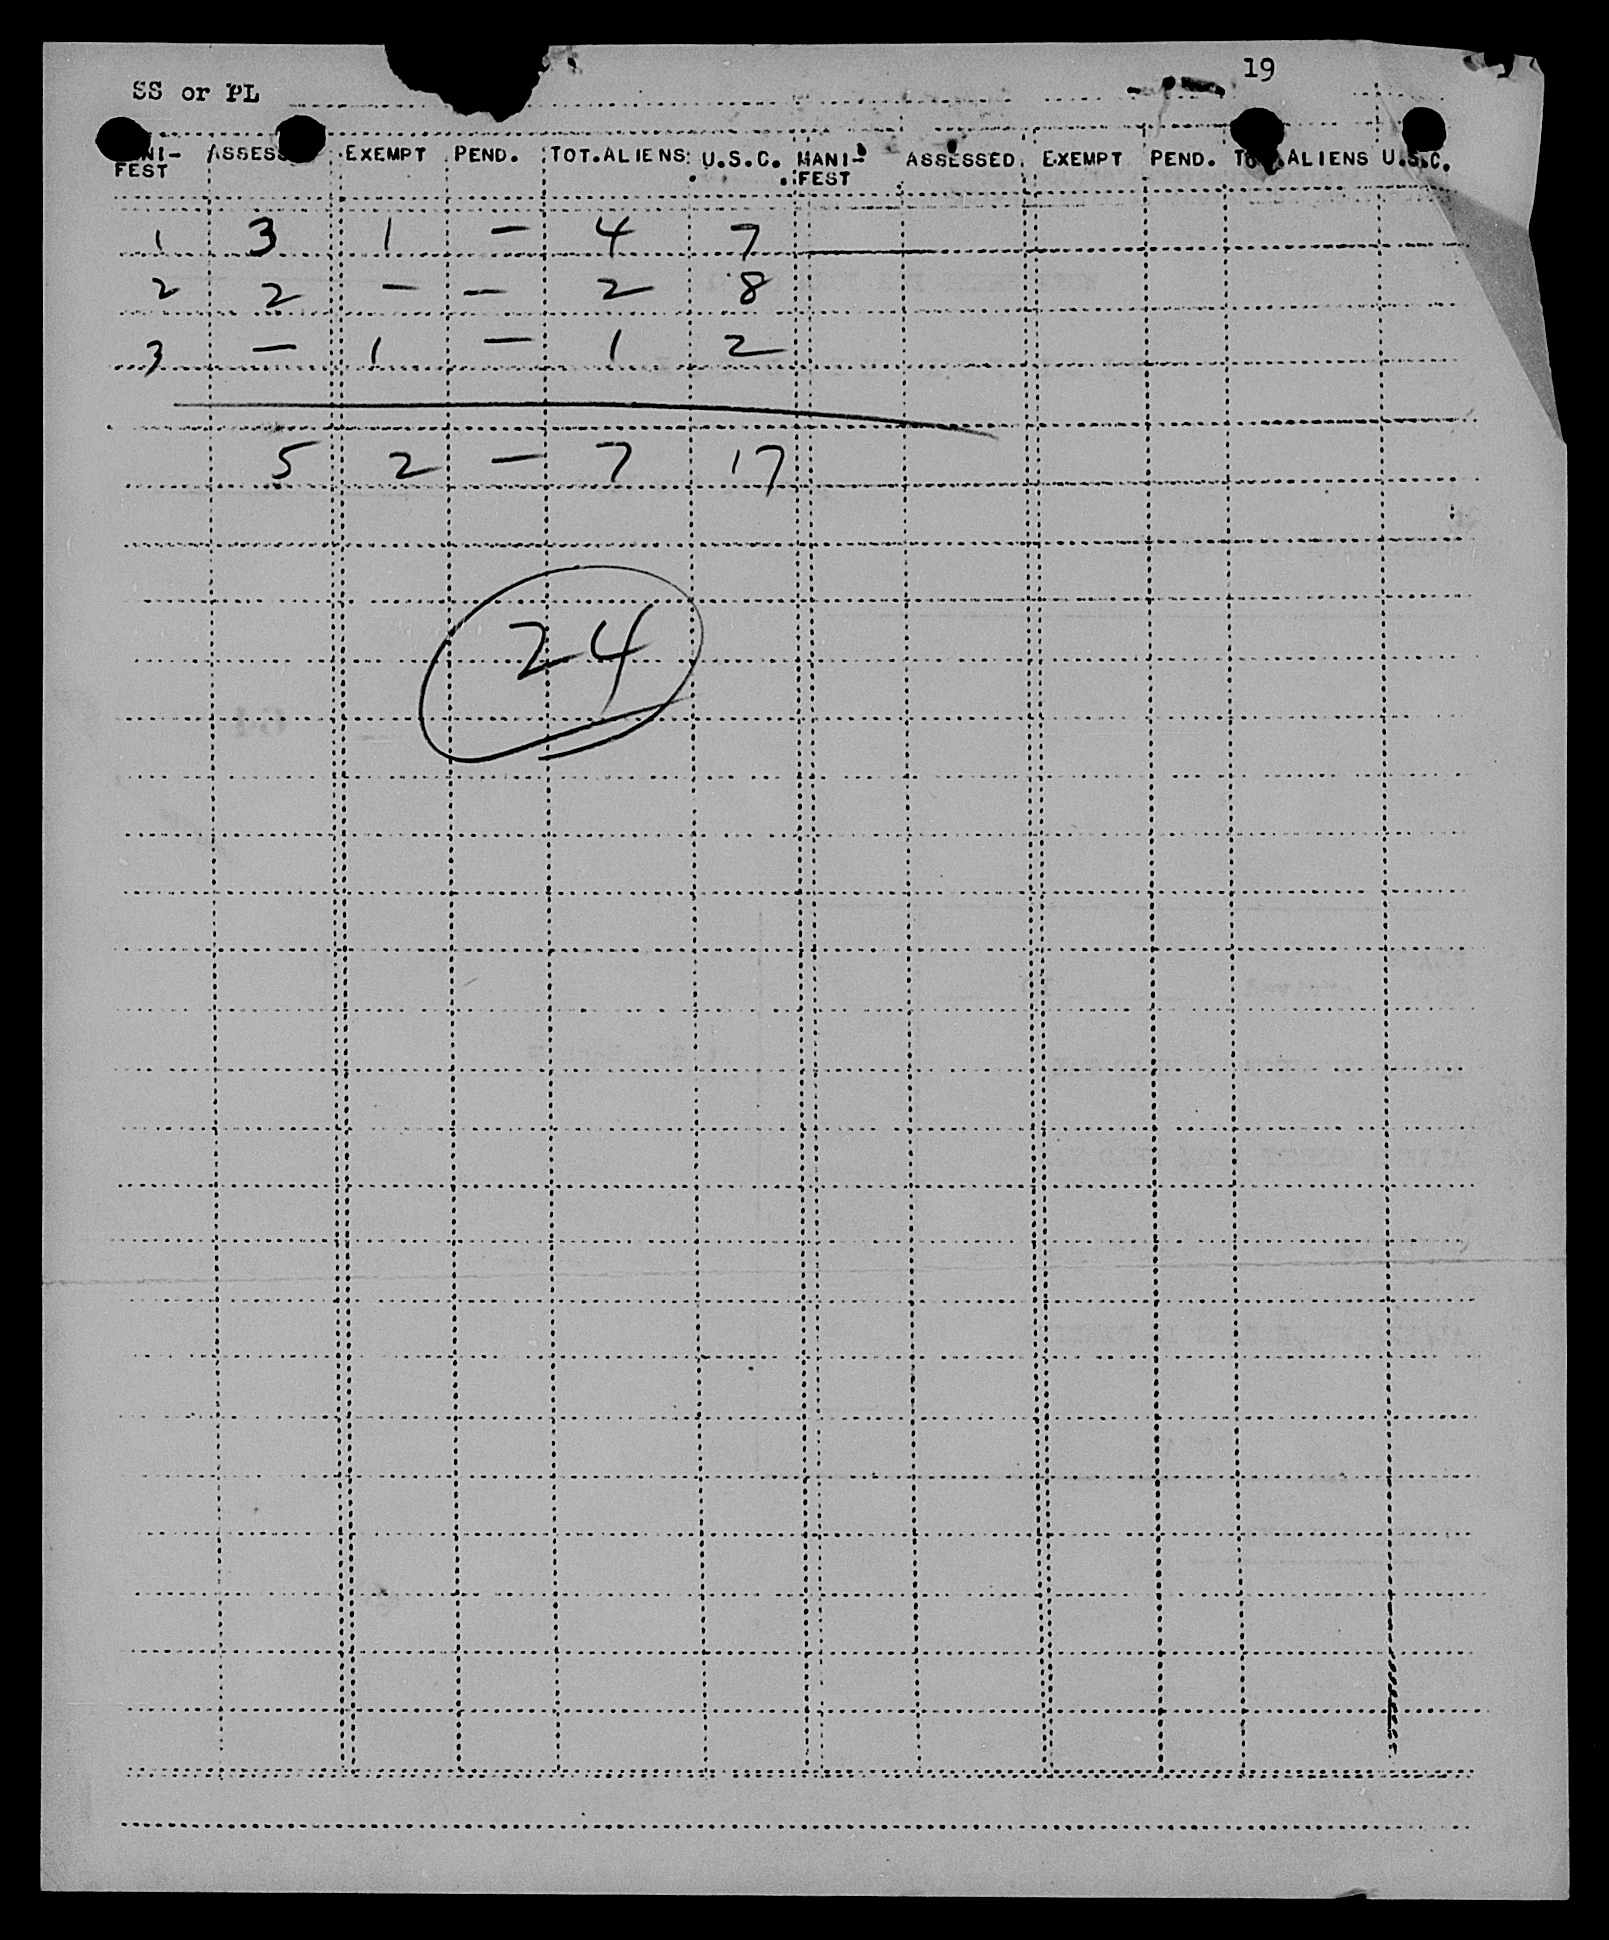 SS or PL 19
ASSESS EXEMPT PEND. TOT.ALIENS U.S.C. MANI- ASSESSED EXEMPT PEND. ALIENS U.S.C.
FEST FEST
1 3 1 - 4 7
2 2 - - 2 8
3 - 1 - 1 2
5 2 - 7 17
24